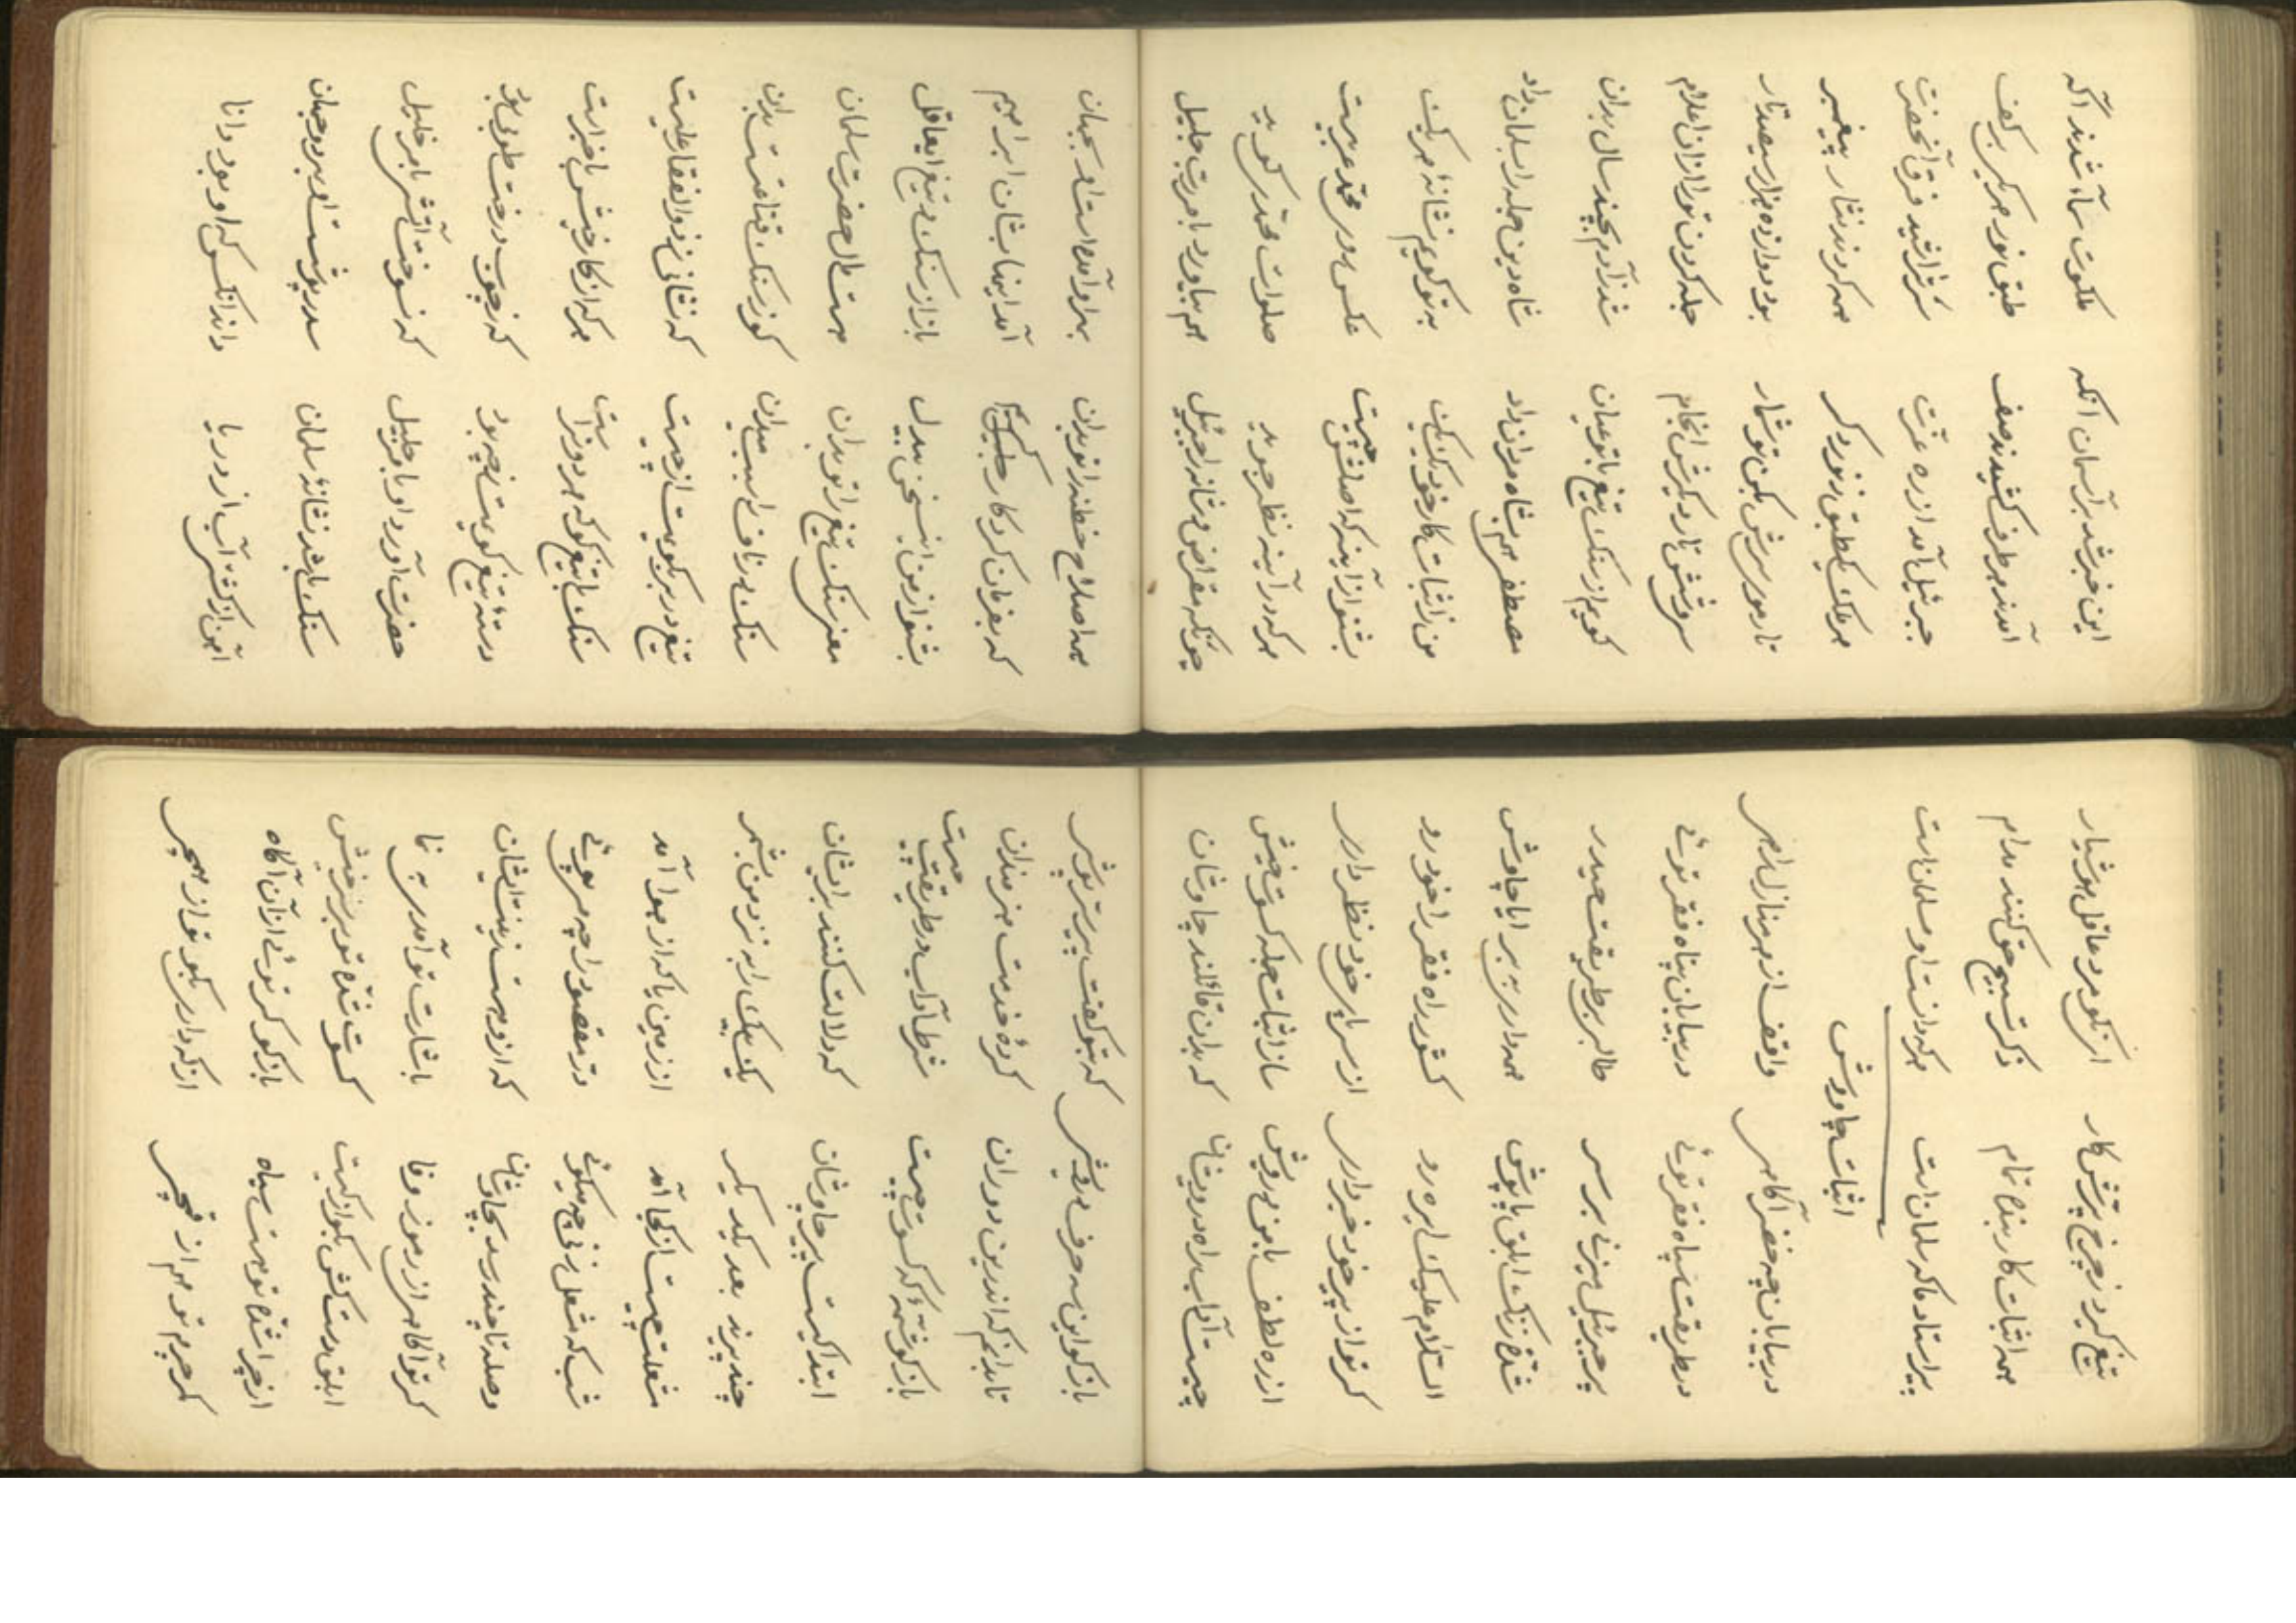 این خبر شد بر آسمان انکه ملکوت سما شدند آکه
آمدند هر طرف کشیده صف طبق نور هر یکی بر کف
جبرئیل آمد از ره عزت سر تراشید فرق آنحضرت
هر ملک یکطبق ز نور دکر همه کردند نثار پیغمبر
تار موی سرش بکن تو شمار بود دوازده هزار سیصد تار
سی و شش تار دیکرش انجام جمله کردن تو را از آن اعلام
کویم از سنک تیغ با تو عیان شد ز آدم بچند سال بدان
مصطفی هم بشاه مردان داد شاه دین جمله را بسلمان داد
من ز اثبات کار خود یک یک به تو کویم نشانهٔ هر یک
بشنو از آینه که اصلش چیست عکس روی محمد عربیست
هر که در آینه نظر جوید صلوات محمدی کوید
چونکه مقراض و شانه را جبرئیل هم بیاورد با امر رب جلیل
همه اصلاح خطند از تو بدان بهر او آمد است بجهان
که بفرمان کردکار کریم آمد اینها بشان ابراهیم
بشنو از من این سخن بدل باز از سنک و تیغ ایعاقل
معنی سنک تیغ را تو بدان هست مال حضرت سلمان
سنک هر ناف را سبب میدان کوز سنک قناعتست بدان
تیغ در بکویمت از چیست که نشانی ز ذوالفقار علیست
سنک با تیغ کو که بهر دو تراست هر که از کار خویش با خبر است
دستهٔ تیغ کویمت ز چه بود که ز چوب درخت طوبی بود
حضرت آورد او که نسوخت آتشی بابر خلیل
سنک باشد نشانهٔ سلمان سدر پوشست او بهر دو جهان
آهن از آب از دریا داند آنکس که او بود دانا
تیغ کیرد ز چرخ کار ار نکو مرد عاقل هوشیار
همه اثبات کار بنده تمام ذکر تسبیح حق کنند مدام
پیر استاد ما که سلمان است هر که دانست او مسلمان است
اثبات چاوش
در بیابان چه خضر آکاهی واقف از هر منازل راهی
در طریقت سپاه فقر توئی در بیابان پناه فقر توئی
پر جبرئیل میزنی بر سر طالبی بر طریقت حیدر
شده زنک ابلق پاپوش همه داری به بر ایا چاوش
السلام علیک ای ره رو کشور راه فقر را خود رو
کر تو از پیر خود خبر داری از سراپای خود نظر داری
از ره لطف با من درویش ساز اثبات جمله کسوت خویش
چیست آداب راه درویشان که بدان قائلند چاوشان
بازکو این سه حرف درویشی که بتو کفت پیر ستر پوشی
تا بدانم که اندرین دوران کردهٔ خدمت هنرمندان
باز کو شمهٔ که کسوت چیست شرط آداب در طریقت چیست
ابتدا کیست پیر چاوشان که دلالت کنند بر ایشان
چند پیرند بعد یکدیکر یک بیک را به نزد من بشمر
مشعلت چیست از کجا آمد از زمین یا که از هوا آمد
شب که مشعل زنی چه میکوئی در تصور راه چه میپوئی
وصله تا چند رسد بچاوشان که از و هست زینت ایشان
کر تو آکاهی از رموز وفا با شارت تو آمدی به نما
ابلق دستکش بکو از کیست کسوت شدهٔ تو بر خویش
از چرا شدهٔ تو هست سیاه بازکو کر توئی از آن آکاه
کمر چرم تو هم از قمچی از که داری بکو تو از همچی